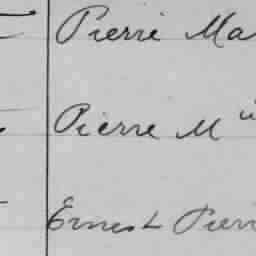 Pierre Ma
Pierre M
Ernest Pierr